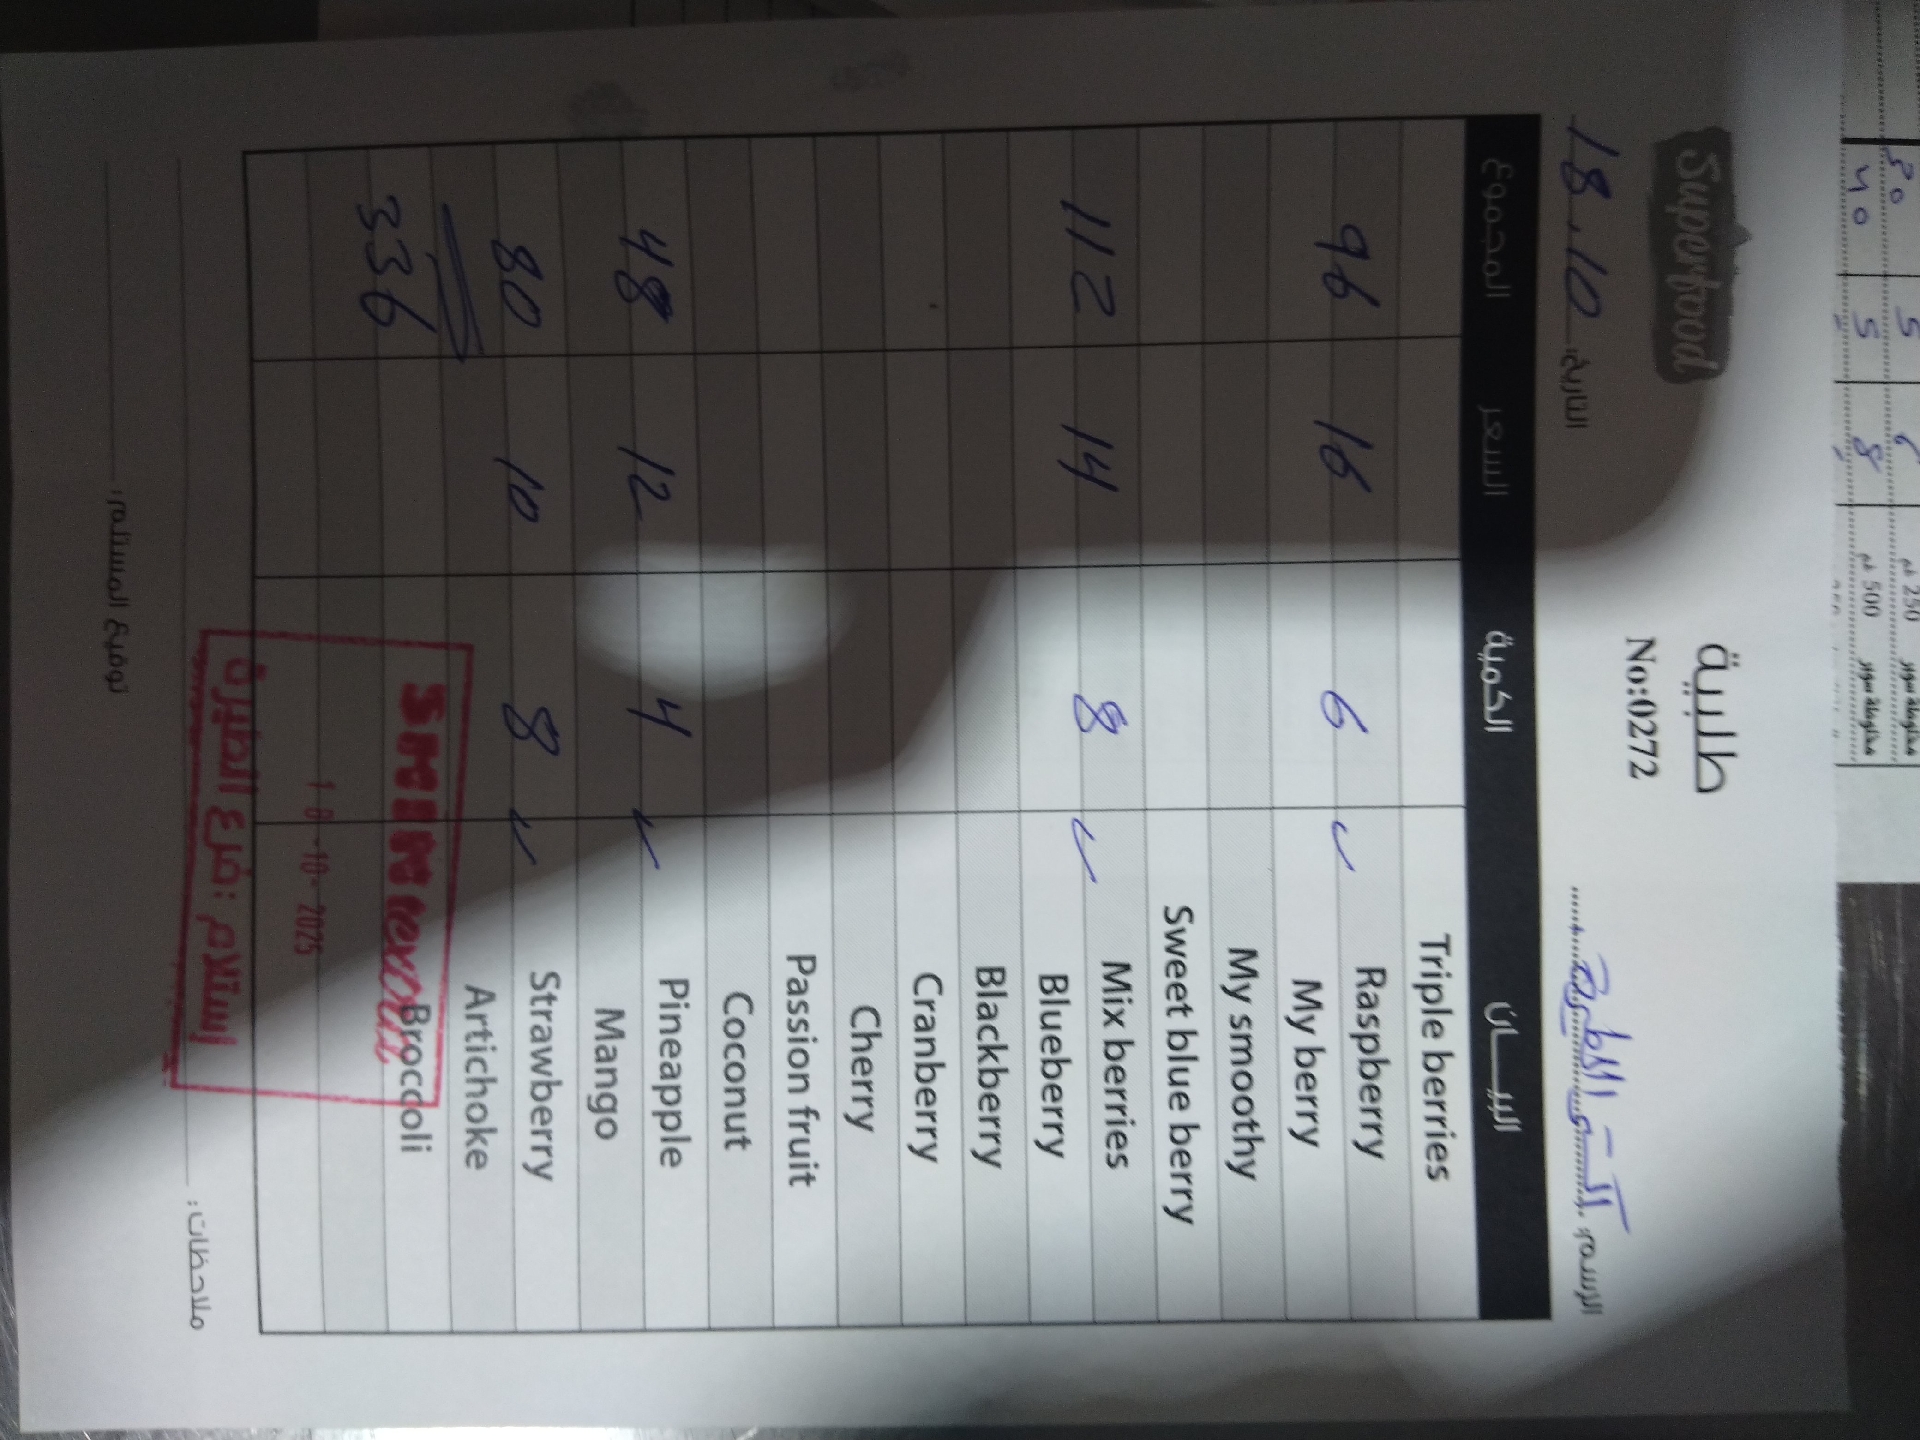 Superfood
طلبية
No:0272
الإسم: آكت - الطيرة
التاريخ: 18.10
البيـــان الكمية السعر المجموع
Triple berries
Raspberry ✓ 6 16 96
My berry
My smoothy
Sweet blue berry
Mix berries ✓ 8 14 112
Blueberry
Blackberry
Cranberry
Cherry
Passion fruit
Coconut
Pineapple ✓ 4 12 48
Mango
Strawberry ✓ 8 10 80
Artichoke
Broccoli 336
18-10-2025
إستلام :فرع الطيرة
ملاحظات:
توقيع المستلم:
30 5 6 250 غم
40 5 8 500 غم